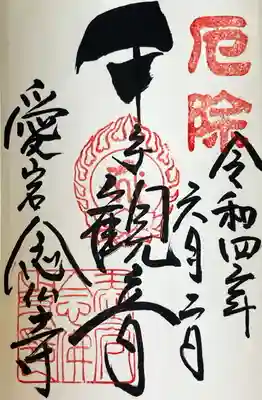 厄除
令和四年
六月二日
千手観音
愛宕念仏寺